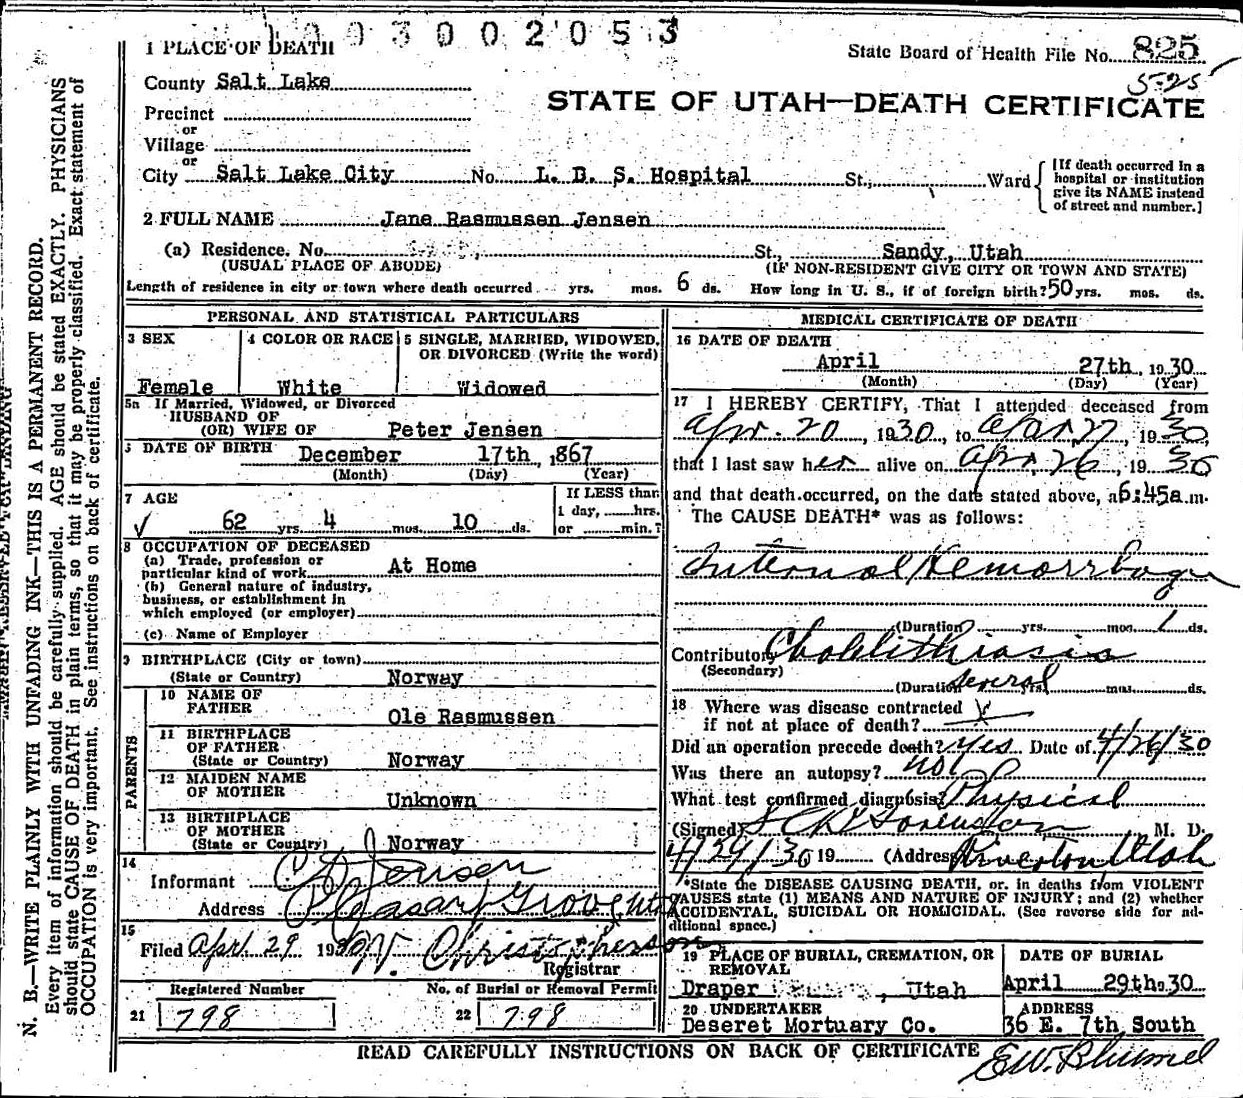 1003002053
1 PLACE OF DEATH
State Board of Health File No. 825
5-25
County Salt Lake
STATE OF UTAH—DEATH CERTIFICATE
Precinct
or
Village
or
City Salt Lake City No. L. D. S. Hospital St., Ward
[If death occurred in a
hospital or institution
give its NAME instead
of street and number.]
2 FULL NAME Jane Rasmussen Jensen
(a) Residence. No. St., Sandy, Utah
(USUAL PLACE OF ABODE) (IF NON-RESIDENT GIVE CITY OR TOWN AND STATE)
Length of residence in city or town where death occurred yrs. mos. 6 ds. How long in U. S., if of foreign birth? 50 yrs. mos. ds.
PERSONAL AND STATISTICAL PARTICULARS
3 SEX
Female
4 COLOR OR RACE
White
5 SINGLE, MARRIED, WIDOWED,
OR DIVORCED (Write the word)
Widowed
5a If Married, Widowed, or Divorced
HUSBAND OF
(OR) WIFE OF Peter Jensen
DATE OF BIRTH December 17th, 1867
(Month) (Day) (Year)
7 AGE
62 yrs. 4 mos. 10 ds.
If LESS than
1 day, ......hrs.
or ......min.?
8 OCCUPATION OF DECEASED
(a) Trade, profession or
particular kind of work At Home
(b) General nature of industry,
business, or establishment in
which employed (or employer)
(c) Name of Employer
9 BIRTHPLACE (City or town)
(State or Country) Norway
PARENTS
10 NAME OF
FATHER Ole Rasmussen
11 BIRTHPLACE
OF FATHER
(State or Country) Norway
12 MAIDEN NAME
OF MOTHER Unknown
13 BIRTHPLACE
OF MOTHER
(State or Country) Norway
14
Informant Jensen
Address Pleasant Grove, Utah
15
Filed Apr. 29 1930 W. Christopherson
Registrar
Registered Number
21 798
No. of Burial or Removal Permit
22 798
MEDICAL CERTIFICATE OF DEATH
16 DATE OF DEATH
April 27th, 1930
(Month) (Day) (Year)
17 I HEREBY CERTIFY, That I attended deceased from
Apr. 20, 1930, to Apr. 27, 1930,
that I last saw her alive on Apr. 26, 1930
and that death occurred, on the date stated above, at 6:45a.m.
The CAUSE DEATH* was as follows:
Internal Hemorrhage
(Duration yrs. mos. 1 ds.
Contributory Cholelithiasis
(Secondary)
(Duration several yrs. mos. ds.
18 Where was disease contracted
if not at place of death?
Did an operation precede death? yes Date of 4/26/30
Was there an autopsy? no
What test confirmed diagnosis? Physical
(Signed) Sorenson M. D.
4/29/30 19 (Address) Riverton Utah
*State the DISEASE CAUSING DEATH, or, in deaths from VIOLENT
CAUSES state (1) MEANS AND NATURE OF INJURY; and (2) whether
ACCIDENTAL, SUICIDAL OR HOMICIDAL. (See reverse side for ad-
ditional space.)
19 PLACE OF BURIAL, CREMATION, OR
REMOVAL
Draper, Utah
DATE OF BURIAL
April 29th 1930
20 UNDERTAKER
Deseret Mortuary Co.
ADDRESS
36 E. 7th South
READ CAREFULLY INSTRUCTIONS ON BACK OF CERTIFICATE
E.W. Blumel
N. B.—WRITE PLAINLY WITH UNFADING INK—THIS IS A PERMANENT RECORD.
Every item of information should be carefully supplied. AGE should be stated EXACTLY. PHYSICIANS
should state CAUSE OF DEATH in plain terms, so that it may be properly classified. Exact statement of
OCCUPATION is very important. See instructions on back of certificate.